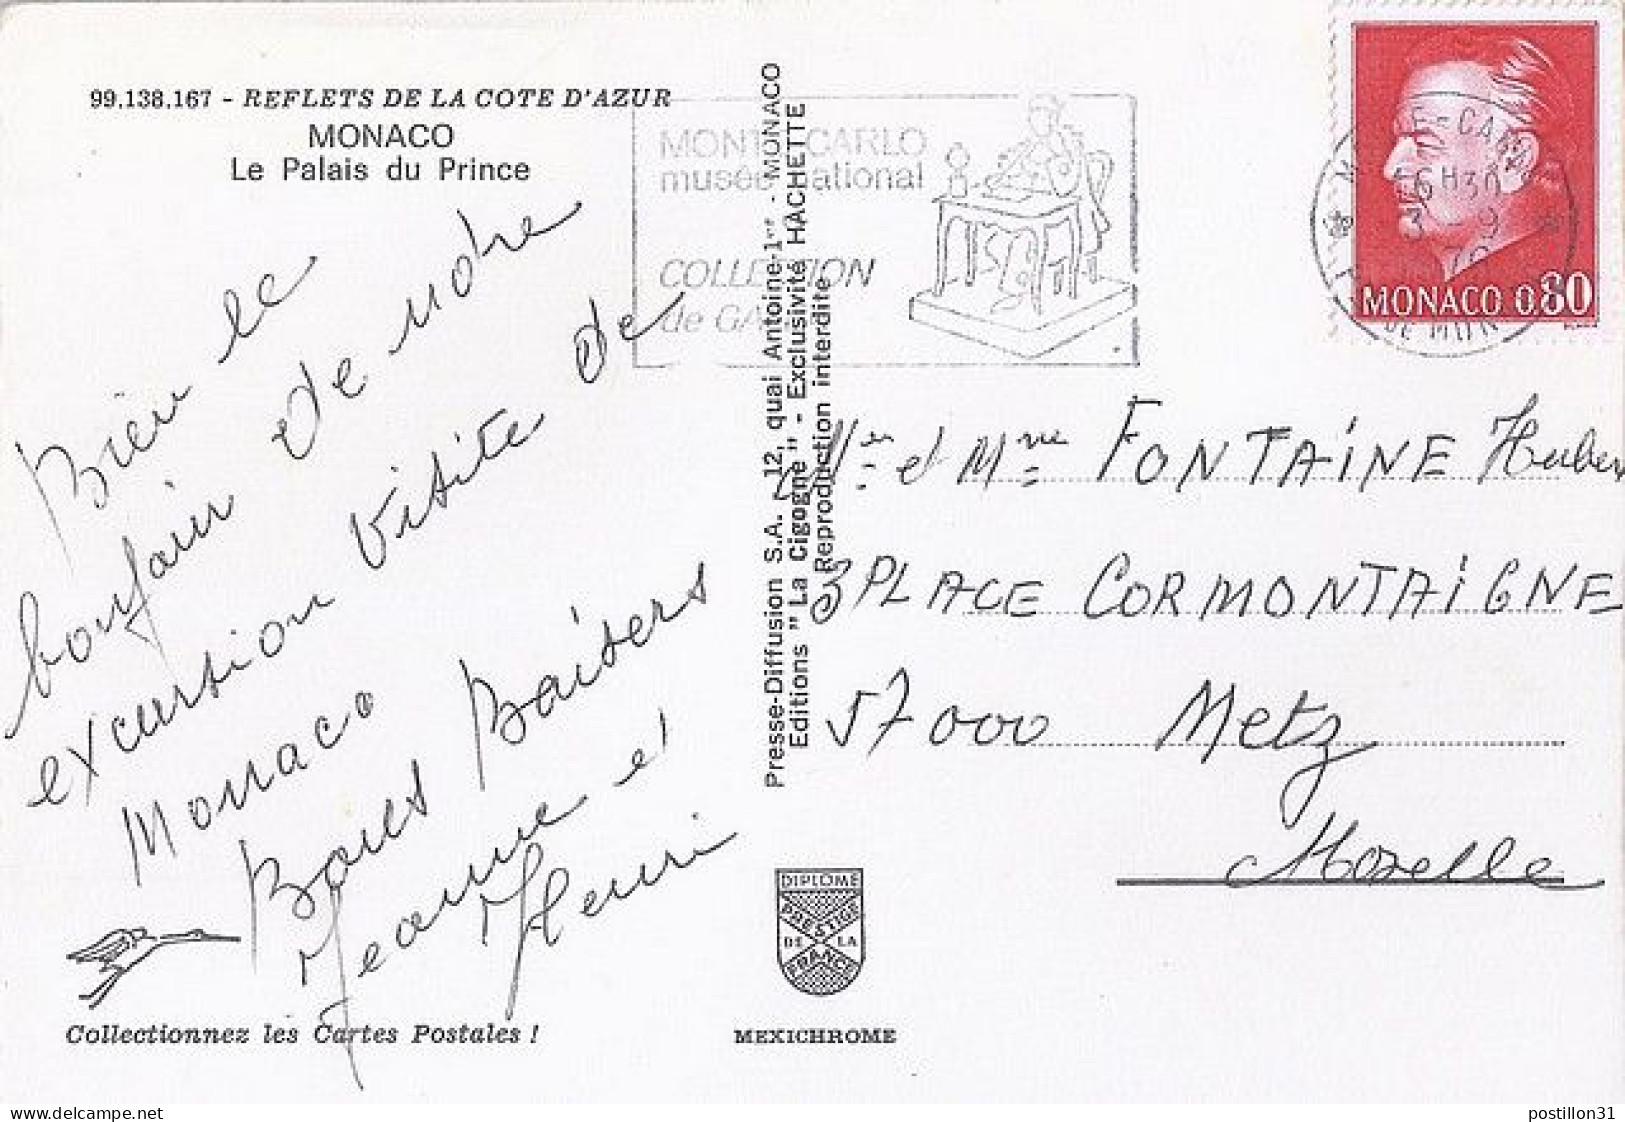 99.138.167 - REFLETS DE LA COTE D'AZUR
MONACO
Le Palais du Prince
Bien le
bonjour de notre
excursion visite de
Monaco
Bons Baisers
Jeanne et
Henri
Collectionnez les Cartes Postales !
MONTE-CARLO
musée national
COLLECTION
de GA
Presse-Diffusion S.A. - 12, quai Antoine-1er - MONACO
Editions "La Cigogne" - Exclusivité HACHETTE
Reproduction interdite
DIPLOME
PRESTIGE
DE LA
FRANCE
MEXICHROME
MONACO 0.80
16H30
3 - 9
Mr et Mme FONTAINE Hubert
3 PLACE CORMONTAIGNE
57000 Metz
Moselle
www.delcampe.net
postillon31